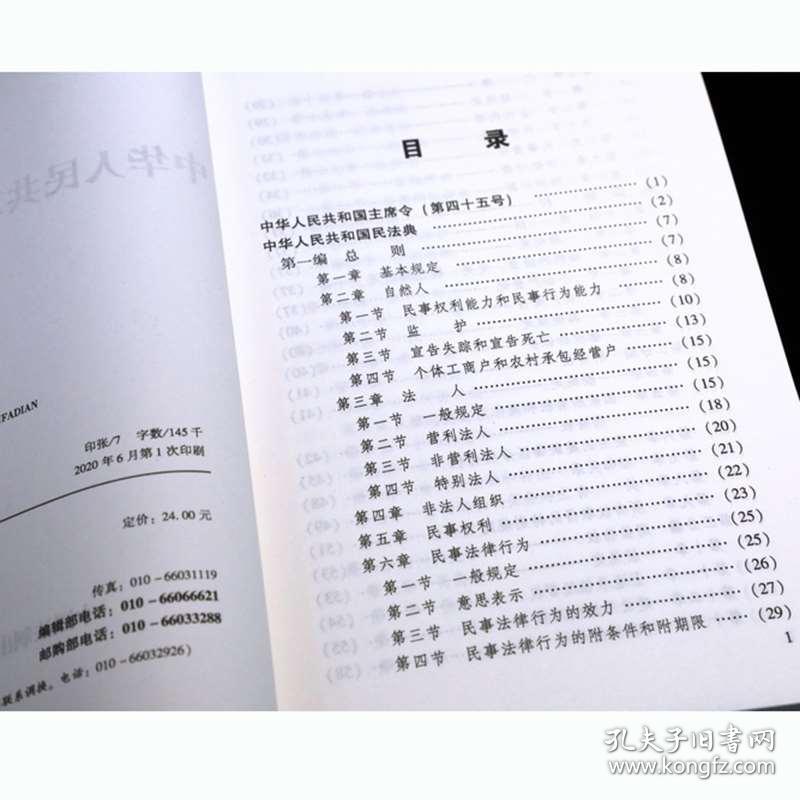 FADIAN
印张/7 字数/145千
2020年6月第1次印刷
定价：24.00元
传真：010-66031119
编辑部电话：010-66066621
邮购部电话：010-66033288
联系调换。电话：010-66032926)
目 录
中华人民共和国主席令（第四十五号）……(1)
中华人民共和国民法典……(2)
第一编 总 则……(7)
第一章 基本规定……(7)
第二章 自然人……(8)
第一节 民事权利能力和民事行为能力……(8)
第二节 监 护……(10)
第三节 宣告失踪和宣告死亡……(13)
第四节 个体工商户和农村承包经营户……(15)
第三章 法 人……(15)
第一节 一般规定……(15)
第二节 营利法人……(18)
第三节 非营利法人……(20)
第四节 特别法人……(21)
第四章 非法人组织……(22)
第五章 民事权利……(23)
第六章 民事法律行为……(25)
第一节 一般规定……(25)
第二节 意思表示……(26)
第三节 民事法律行为的效力……(27)
第四节 民事法律行为的附条件和附期限……(29)
1
孔夫子旧书网
www.kongfz.com